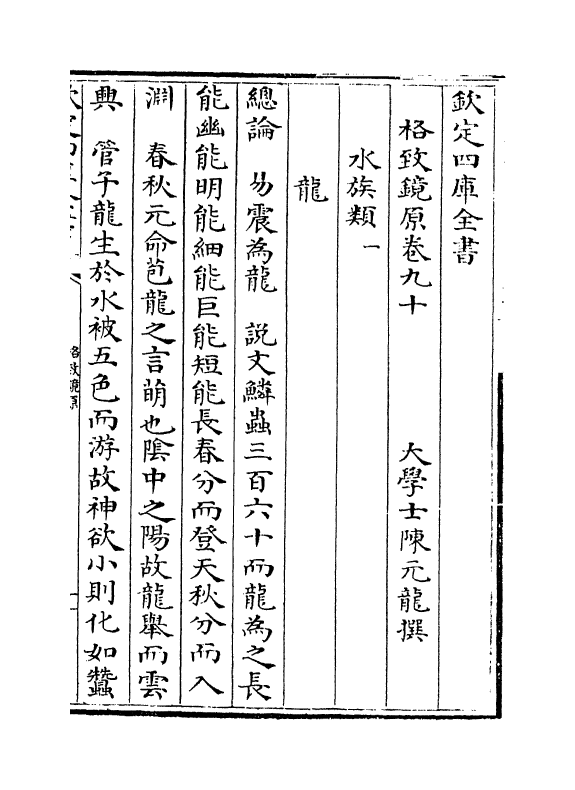 欽定四庫全書
格致鏡原卷九十　大學士陳元龍撰
水族類一
龍
總論　易震為龍　說文鱗蟲三百六十而龍為之長
能幽能明能細能巨能短能長春分而登天秋分而入
淵　春秋元命苞龍之言萌也陰中之陽故龍舉而雲
興　管子龍生於水被五色而游故神欲小則化如蠶
格致鏡原